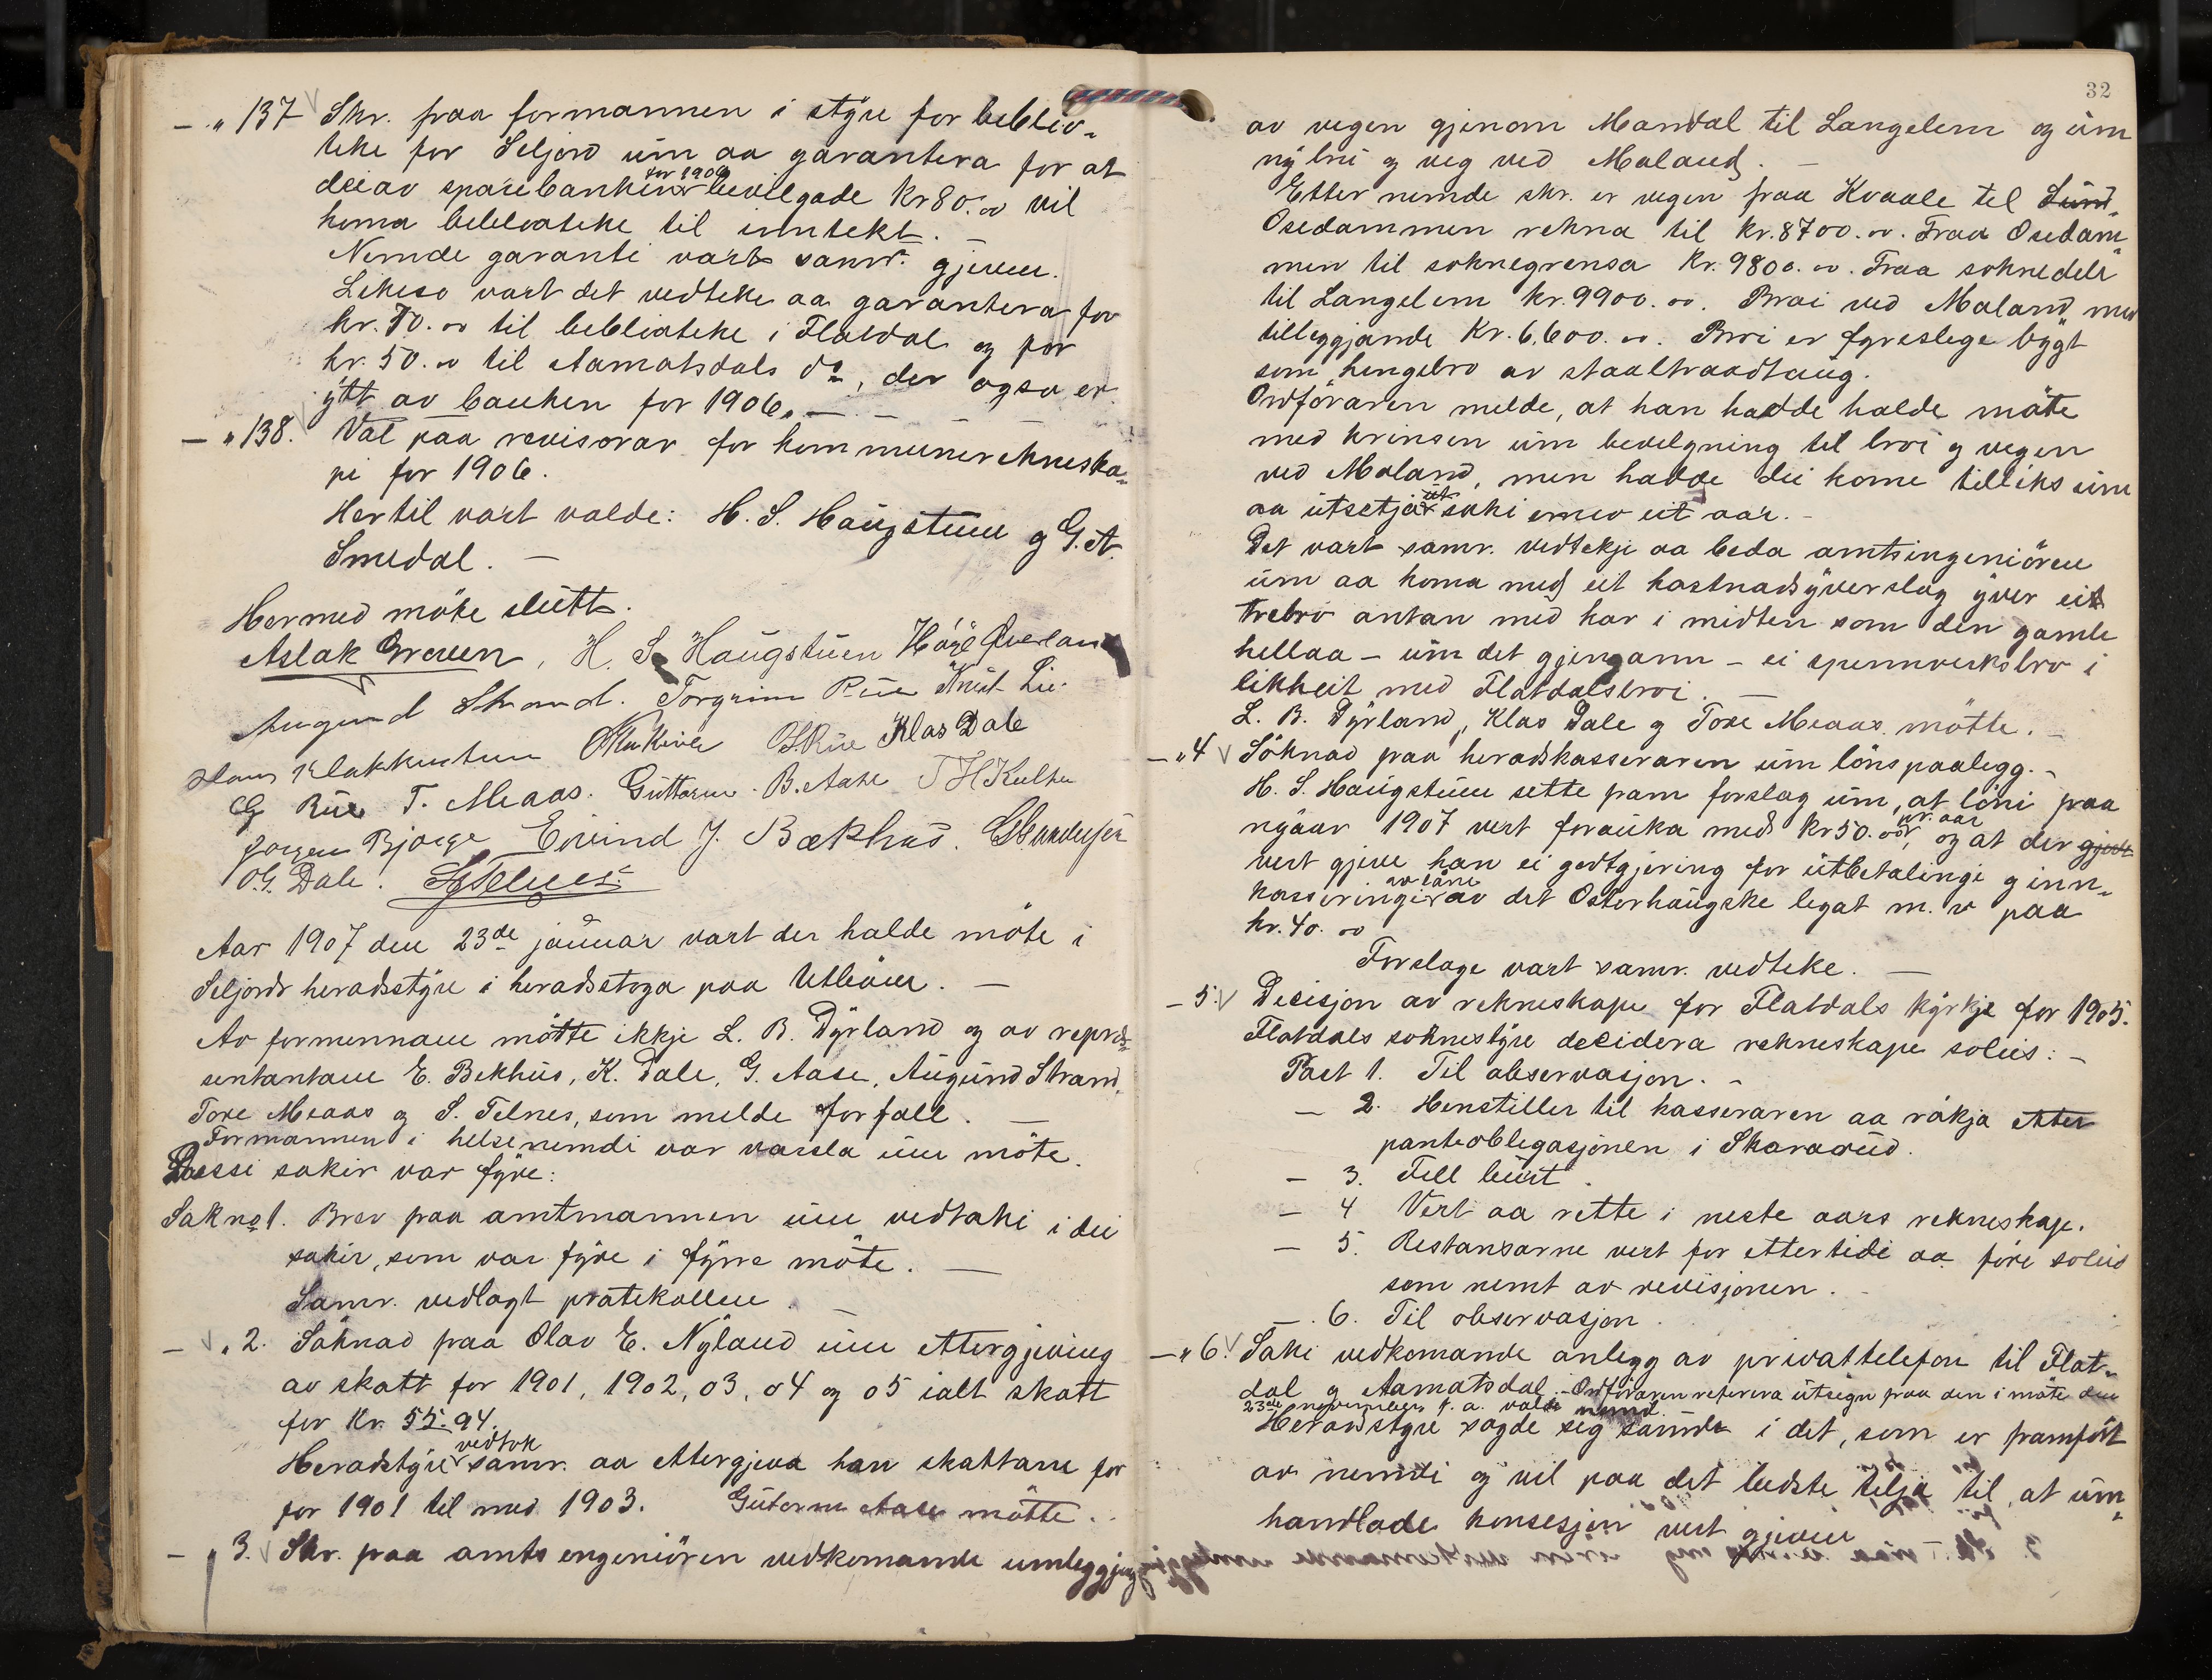 - " 137 Skr. fraa formannen i styre for biblio-
teke for Seljord um aa garantera for at
dei av sparebanken for 1906 bevilgade kr 80.00 vil
koma bibliateke til inntekt. -
Nemde garanti vart samr. gjeven.
Likeso vart det vedteke aa garantera for
kr. 70.00 til bibliateke i Flatdal og for
kr. 50.00 til Aamotsdals do, der ogso er
ytt av banken for 1906. -
- " 138. Val paa revisorar for kommunerekneska-
pi for 1906.
Hertil vart valde: H. S. Haugstuen og G. A.
Smedal. -
Hermed möte slutt.
Aslak Greven, H. S. Haugstuen Høye Overland
Augund Strand. Torgrim Rue Knut Lie.
Hans Klakkustuen SRue Klas Dale
G Rue T. Meaas. Guttorm B. Aase
Jorgen Bjorge Eivind J. Bækhus.
O. G. Dale. S Telnes
Aar 1907 den 23de januar vart der halde möte i
Seljords heradsstyre i heradsstoga paa Utböen. -
Av formennane mötte ikkje L. B. Dyrland og av repræ-
sentantane E. Bekhus, K. Dale, G. Aase, Augund Strand,
Tore Meaas og S. Telnes, som melde forfall. -
Formannen i helsenemdi var varsla um möte.
Desse sakir var fyre:
Sak no 1. Brev fraa amtmannen um vedtaki i dei
sakir, som var fyre i fyrre möte. -
Samr. vedlagt protekollen. -
- " 2. Söknad fraa Olav E. Nyland um ettergjeving
av skatt for 1901, 1902, 03, 04 og 05 ialt skatt
for Kr. 55.94.
Heradstyre vedtok samr. aa ettergjeva han skattane for
for 1901 til med 1903. Gutorm Aase mötte. -
- " 3. Skr. fraa amts engeniören vedkomande umleggjing
32
av vegen gjenom Mandal til Langelem og um
ny bru og veg ved Maland. -
Etter nemde skr. er vegen fraa Kvaale til Sund-
Osedammen rekna til kr. 8700.00. Fraa Osedam-
men til soknegrensa kr. 9800.00. Fraa soknedele
til Langelem kr. 9900.00. Broi ved Maland med
tilleggjande kr. 6,600.00. Broi er fyreslege bygt
som hengebro av staaltraadtaug.
Ordföraren melde, at han hadde halde möte
med krinsen um bevilgning til broi og vegen
ved Maland, men hadde dei kome tilliks um
aa utsetja ut saki enno eit aar. -
Det vart samr. vedtekje aa beda amtsingeniören
um aa koma med eit kostnadsyverslag yver eit
trebro antan med kar i midten som den gamle
hellaa - um det gjeng ann - ei spennverksbro i
likheit med Flatdalsbroi. -
L. B. Dyrland, Klas Dale og Tore Meaas mötte. -
- " 4 Söknad fraa heradskasseraren um lönspaalegg. -
H. S. Haugstuen sette fram forslag um, at löni fraa
nyaar 1907 vert forauka med kr 50.00 pr. aar, og at der gjeve
vert gjeve han ei godtgjering for utbetalingi og inn-
kasseringi av laane av det Osterhaugske legat m. v. paa
kr. 40.00
Forslage vart samr. vedteke. -
- 5. Decisjon av rekneskape for Flatdals kyrkje for 1905.
Flatdals soknestyre decidera rekneskape soleis: -
Post 1. Til observasjon. -
- 2. Henstiller til kasseraren aa rökja etter
panteobligasjonen i Skararud.
- 3. Fell burt.
- 4 Vert aa rette i neste aars rekneskape.
- 5. Restansarne vert for ettertidi aa före soleis
som nemt av revisjonen.
- 6. Til observasjon.
- " 6. Saki vedkomande anlegg av privattelefon til Flat-
dal og Aamotsdal. - Ordföraren referera utsegn fraa den i möte den
23de november f. a. valde nemnd.
Heradstyre sagde seg samde i det, som er framfört
av nemdi og vil paa det bedste tilja til, at um-
handlade konsesjon vert gjeven